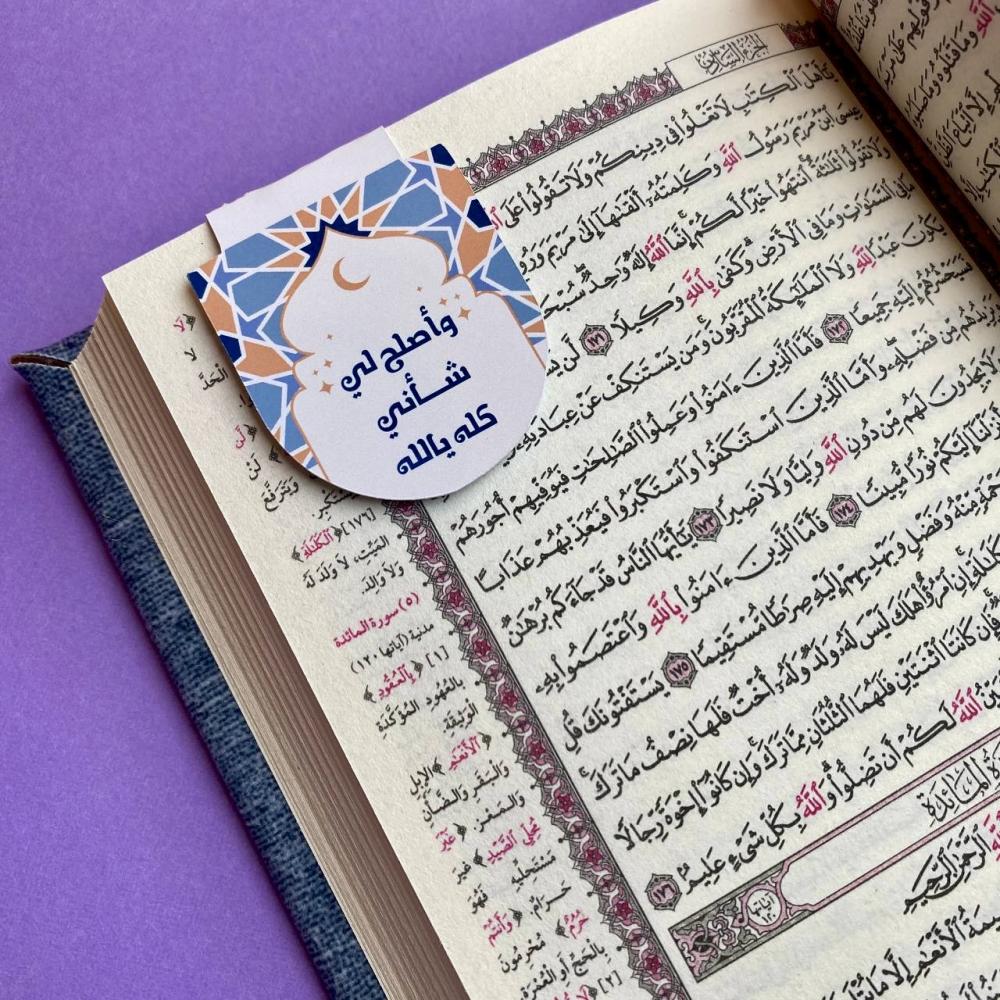 وأصلح لي
شأني
كله يالله
الجزء السادس
يَٰٓأَهْلَ ٱلْكِتَٰبِ لَا تَغْلُوا۟ فِى دِينِكُمْ وَلَا تَقُولُوا۟ عَلَى
عِيسَى ٱبْنُ مَرْيَمَ رَسُولُ ٱللَّهِ وَكَلِمَتُهُۥٓ أَلْقَىٰهَآ إِلَىٰ مَرْيَمَ وَرُو
وَلَا تَقُولُوا۟ ثَلَٰثَةٌ ٱنتَهُوا۟ خَيْرًا لَّكُمْ إِنَّمَا ٱللَّهُ إِلَٰهٌ وَٰحِدٌ سُبْحَ
مَا فِى ٱلسَّمَٰوَٰتِ وَمَا فِى ٱلْأَرْضِ وَكَفَىٰ بِٱللَّهِ وَكِيلًا ١٧١ لَّن يَسْ
يَكُونَ عَبْدًا لِّلَّهِ وَلَا ٱلْمَلَٰٓئِكَةُ ٱلْمُقَرَّبُونَ وَمَن يَسْتَنكِفْ عَنْ عِبَادَتِهِۦ
فَسَيَحْشُرُهُمْ إِلَيْهِ جَمِيعًا ١٧٢ فَأَمَّا ٱلَّذِينَ ءَامَنُوا۟ وَعَمِلُوا۟ ٱلصَّٰلِحَٰتِ فَيُوَفِّيهِمْ أُجُورَهُمْ
وَيَزِيدُهُم مِّن فَضْلِهِۦ وَأَمَّا ٱلَّذِينَ ٱسْتَنكَفُوا۟ وَٱسْتَكْبَرُوا۟ فَيُعَذِّبُهُمْ عَذَابًا
لَا يَجِدُونَ لَهُم مِّن دُونِ ٱللَّهِ وَلِيًّا وَلَا نَصِيرًا ١٧٣ يَٰٓأَيُّهَا ٱلنَّاسُ قَدْ جَآءَكُم بُرْهَٰنٌ
نزَلْنَآ إِلَيْكُمْ نُورًا مُّبِينًا ١٧٤ فَأَمَّا ٱلَّذِينَ ءَامَنُوا۟ بِٱللَّهِ وَٱعْتَصَمُوا۟ بِهِۦ
رَحْمَةٍ مِّنْهُ وَفَضْلٍ وَيَهْدِيهِمْ إِلَيْهِ صِرَٰطًا مُّسْتَقِيمًا ١٧٥ يَسْتَفْتُونَكَ قُلِ
كَلَٰلَةِ إِنِ ٱمْرُؤٌا۟ هَلَكَ لَيْسَ لَهُۥ وَلَدٌ وَلَهُۥٓ أُخْتٌ فَلَهَا نِصْفُ مَا تَرَكَ
فَإِن كَانَتَا ٱثْنَتَيْنِ فَلَهُمَا ٱلثُّلُثَانِ مِمَّا تَرَكَ وَإِن كَانُوٓا۟ إِخْوَةً رِّجَالًا
يِّنُ ٱللَّهُ لَكُمْ أَن تَضِلُّوا۟ وَٱللَّهُ بِكُلِّ شَىْءٍ عَلِيمٌ ١٧٦
ةُ المَائِدَةِ
آياتها ١٢٠
ٱلرَّحْمَٰنِ ٱلرَّحِيمِ
بَهِيمَةُ ٱلْأَنْعَٰمِ إِلَّا مَا يُتْلَىٰ
[١٧٦] ﴿ٱلْكَلَٰلَةِ﴾
الميّت، لا ولد له
ولا والد.
(٥) سورة المائدة
مدنية (آياتها ١٢٠)
[١] ﴿بِٱلْعُقُودِ﴾
بالعهود المؤكّدة
الوثيقة
﴿ٱلْأَنْعَٰمِ﴾ الإبل
والبقر والضأن
والمعز. ﴿غَيْرَ
مُحِلِّى ٱلصَّيْدِ﴾ غير
مستحليه فهو
حرام. ﴿وَأَنتُمْ
حُرُمٌ﴾ محرمون
بالحج أو العمرة.
[٢]